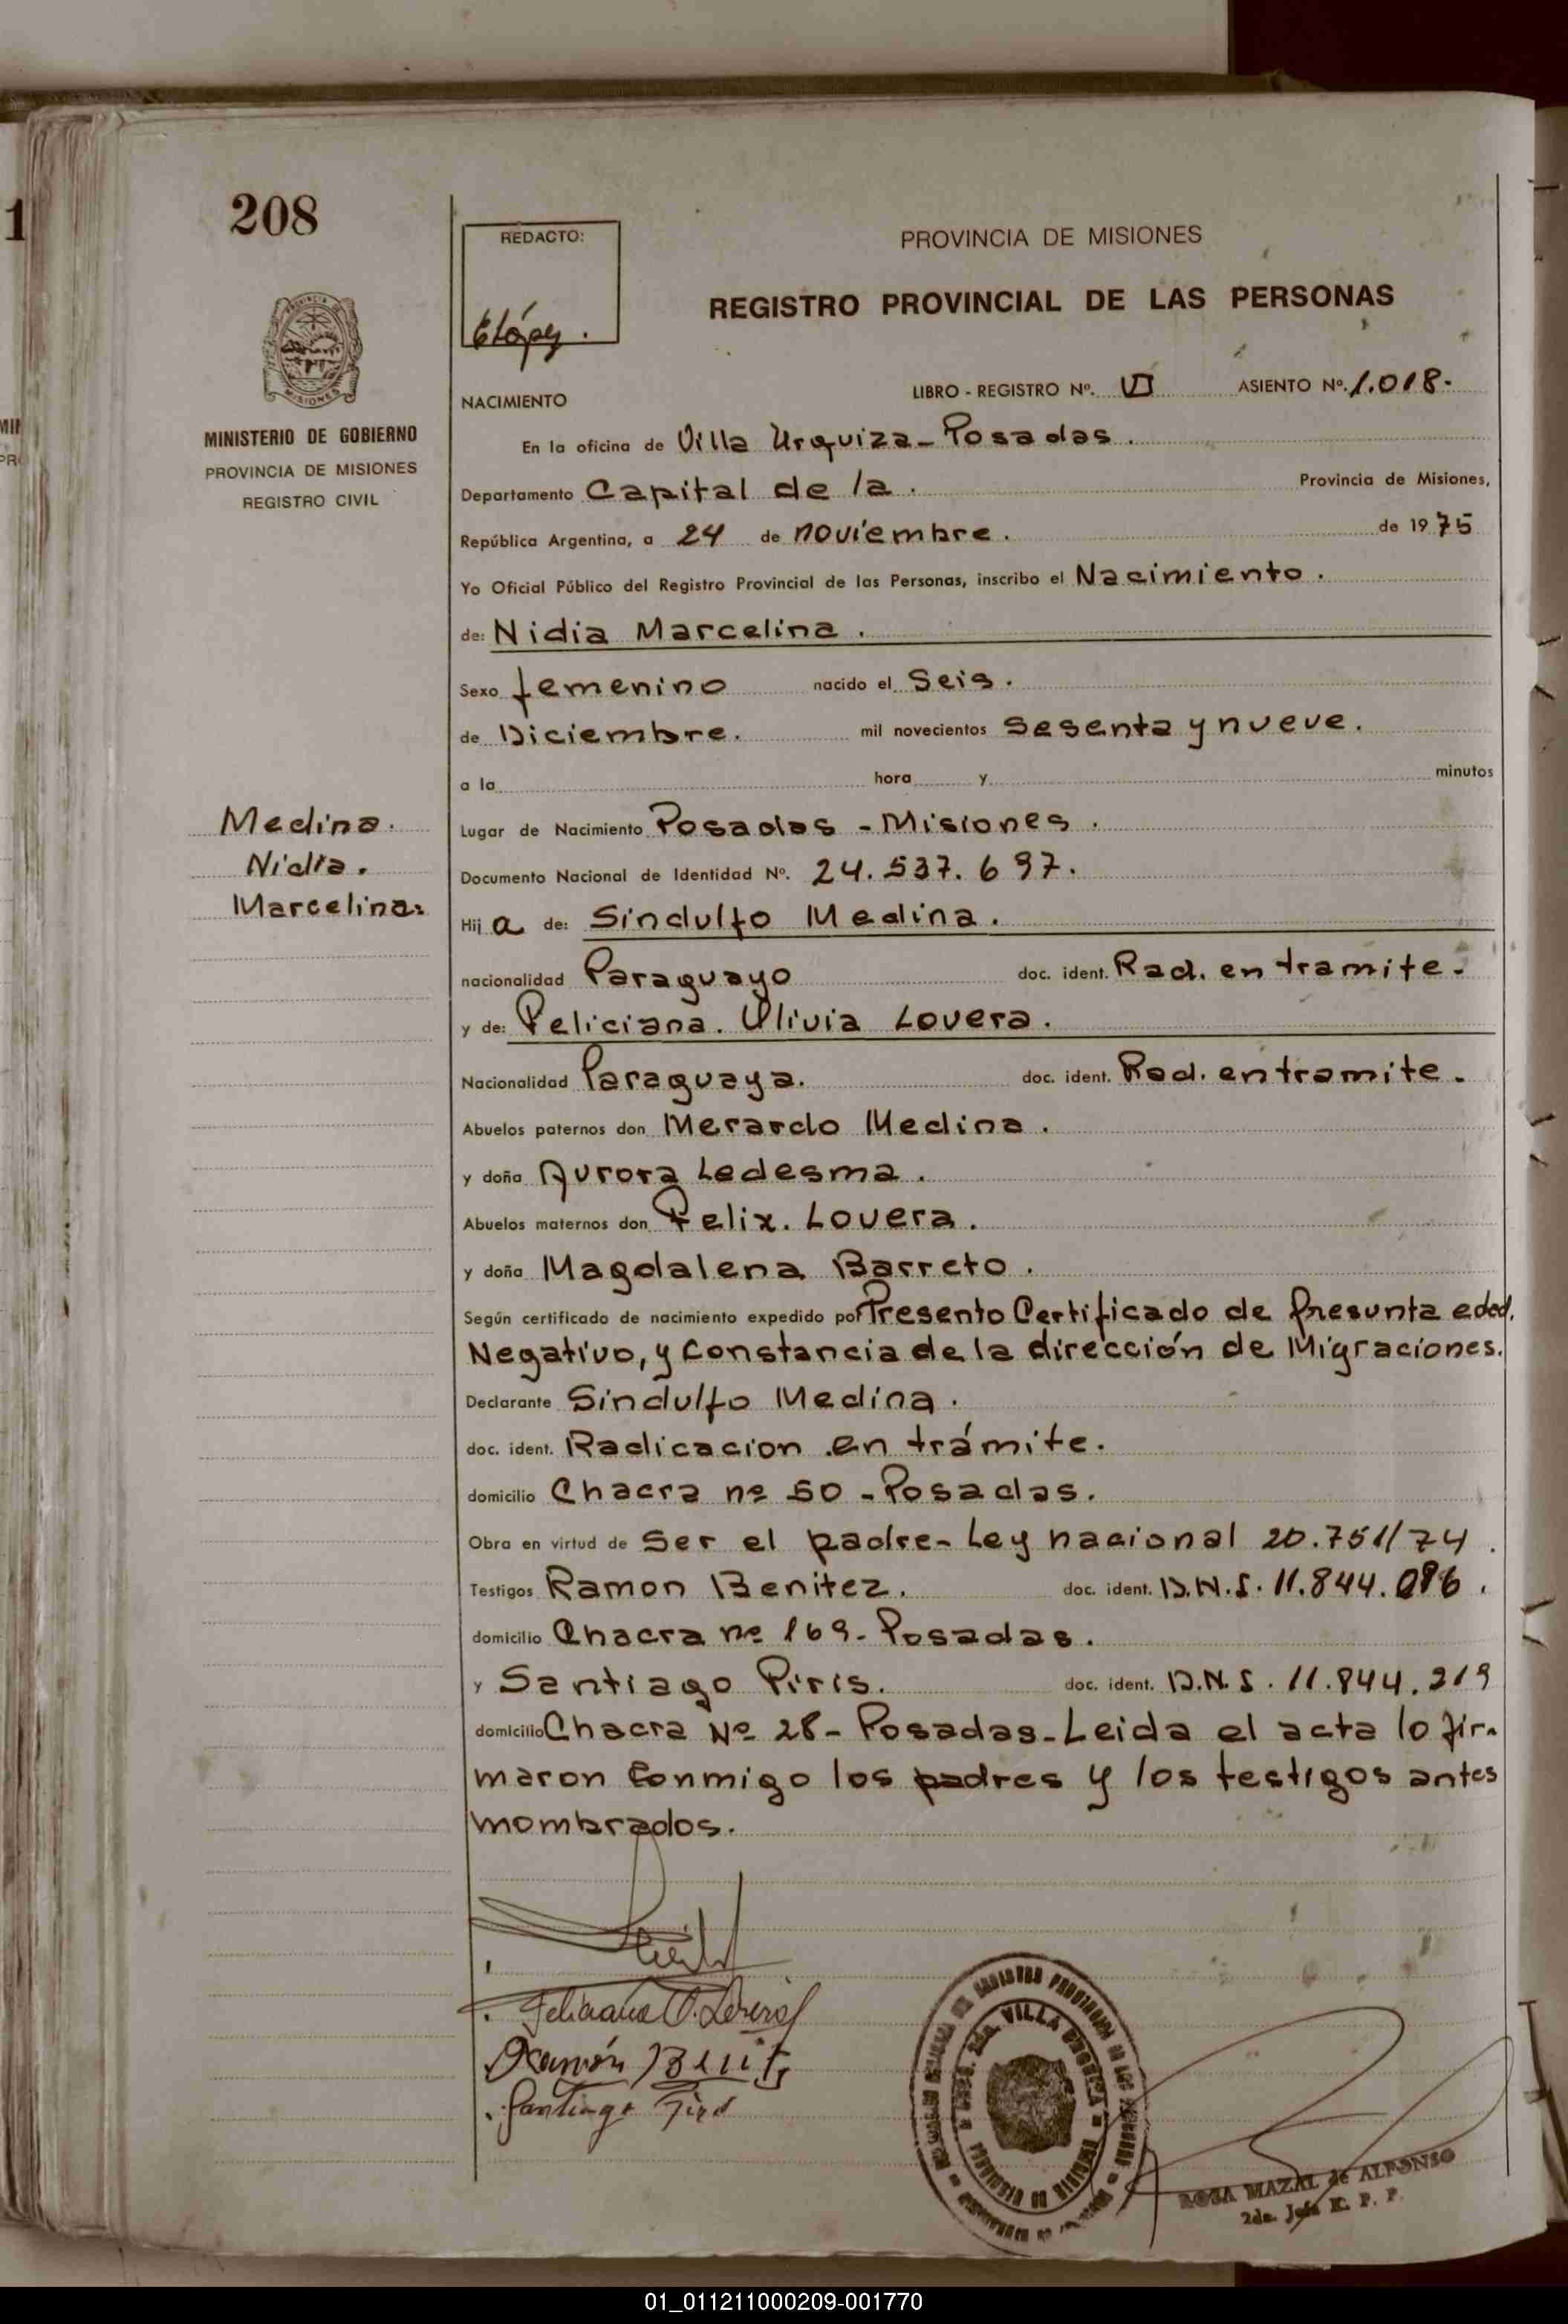 208
REDACTO:
ELópez.
PROVINCIA DE MISIONES
REGISTRO PROVINCIAL DE LAS PERSONAS
MINISTERIO DE GOBIERNO
PROVINCIA DE MISIONES
REGISTRO CIVIL
NACIMIENTO
LIBRO - REGISTRO Nº. VI ASIENTO Nº. 1.018.
En la oficina de Villa Urquiza - Posadas.
Departamento Capital de la. Provincia de Misiones,
República Argentina, a 24 de noviembre. de 1975
Yo Oficial Público del Registro Provincial de las Personas, inscribo el Nacimiento.
de: Nidia Marcelina.
Sexo femenino nacido el Seis.
de Diciembre. mil novecientos sesenta y nueve.
a la hora y minutos
Medina.
Nidia.
Marcelina.
Lugar de Nacimiento Posadas - Misiones.
Documento Nacional de Identidad Nº. 24.537.697.
Hij a de: Sindulfo Medina.
nacionalidad Paraguayo doc. ident. Rad. en tramite.
y de: Feliciana. Olivia Lovera.
Nacionalidad Paraguaya. doc. ident. Rad. en tramite.
Abuelos paternos don Merardo Medina.
y doña Aurora Ledesma.
Abuelos maternos don Felix. Lovera.
y doña Magdalena Barreto.
Según certificado de nacimiento expedido por Presento Certificado de Presunta edad.
Negativo, y Constancia de la dirección de Migraciones.
Declarante Sindulfo Medina.
doc. ident. Radicacion en trámite.
domicilio Chacra nº 50 - Posadas.
Obra en virtud de Ser el padre - Ley nacional 20.751/74.
Testigos Ramon Benitez. doc. ident. D.N.I. 11.844.096.
domicilio Chacra nº 169 - Posadas.
y Santiago Piris. doc. ident. D.N.I. 11.844.219
domicilio Chacra Nº 28 - Posadas - Leida el acta lo fir-
maron Conmigo los padres y los testigos antes
mombrados.
Feliciana O. Lovera
Ramón Benitez
Santiago Piris
VILLA URQUIZA
ROSA MAZAL de ALFONSO
2da. Jefa R. P. P.
01_011211000209-001770